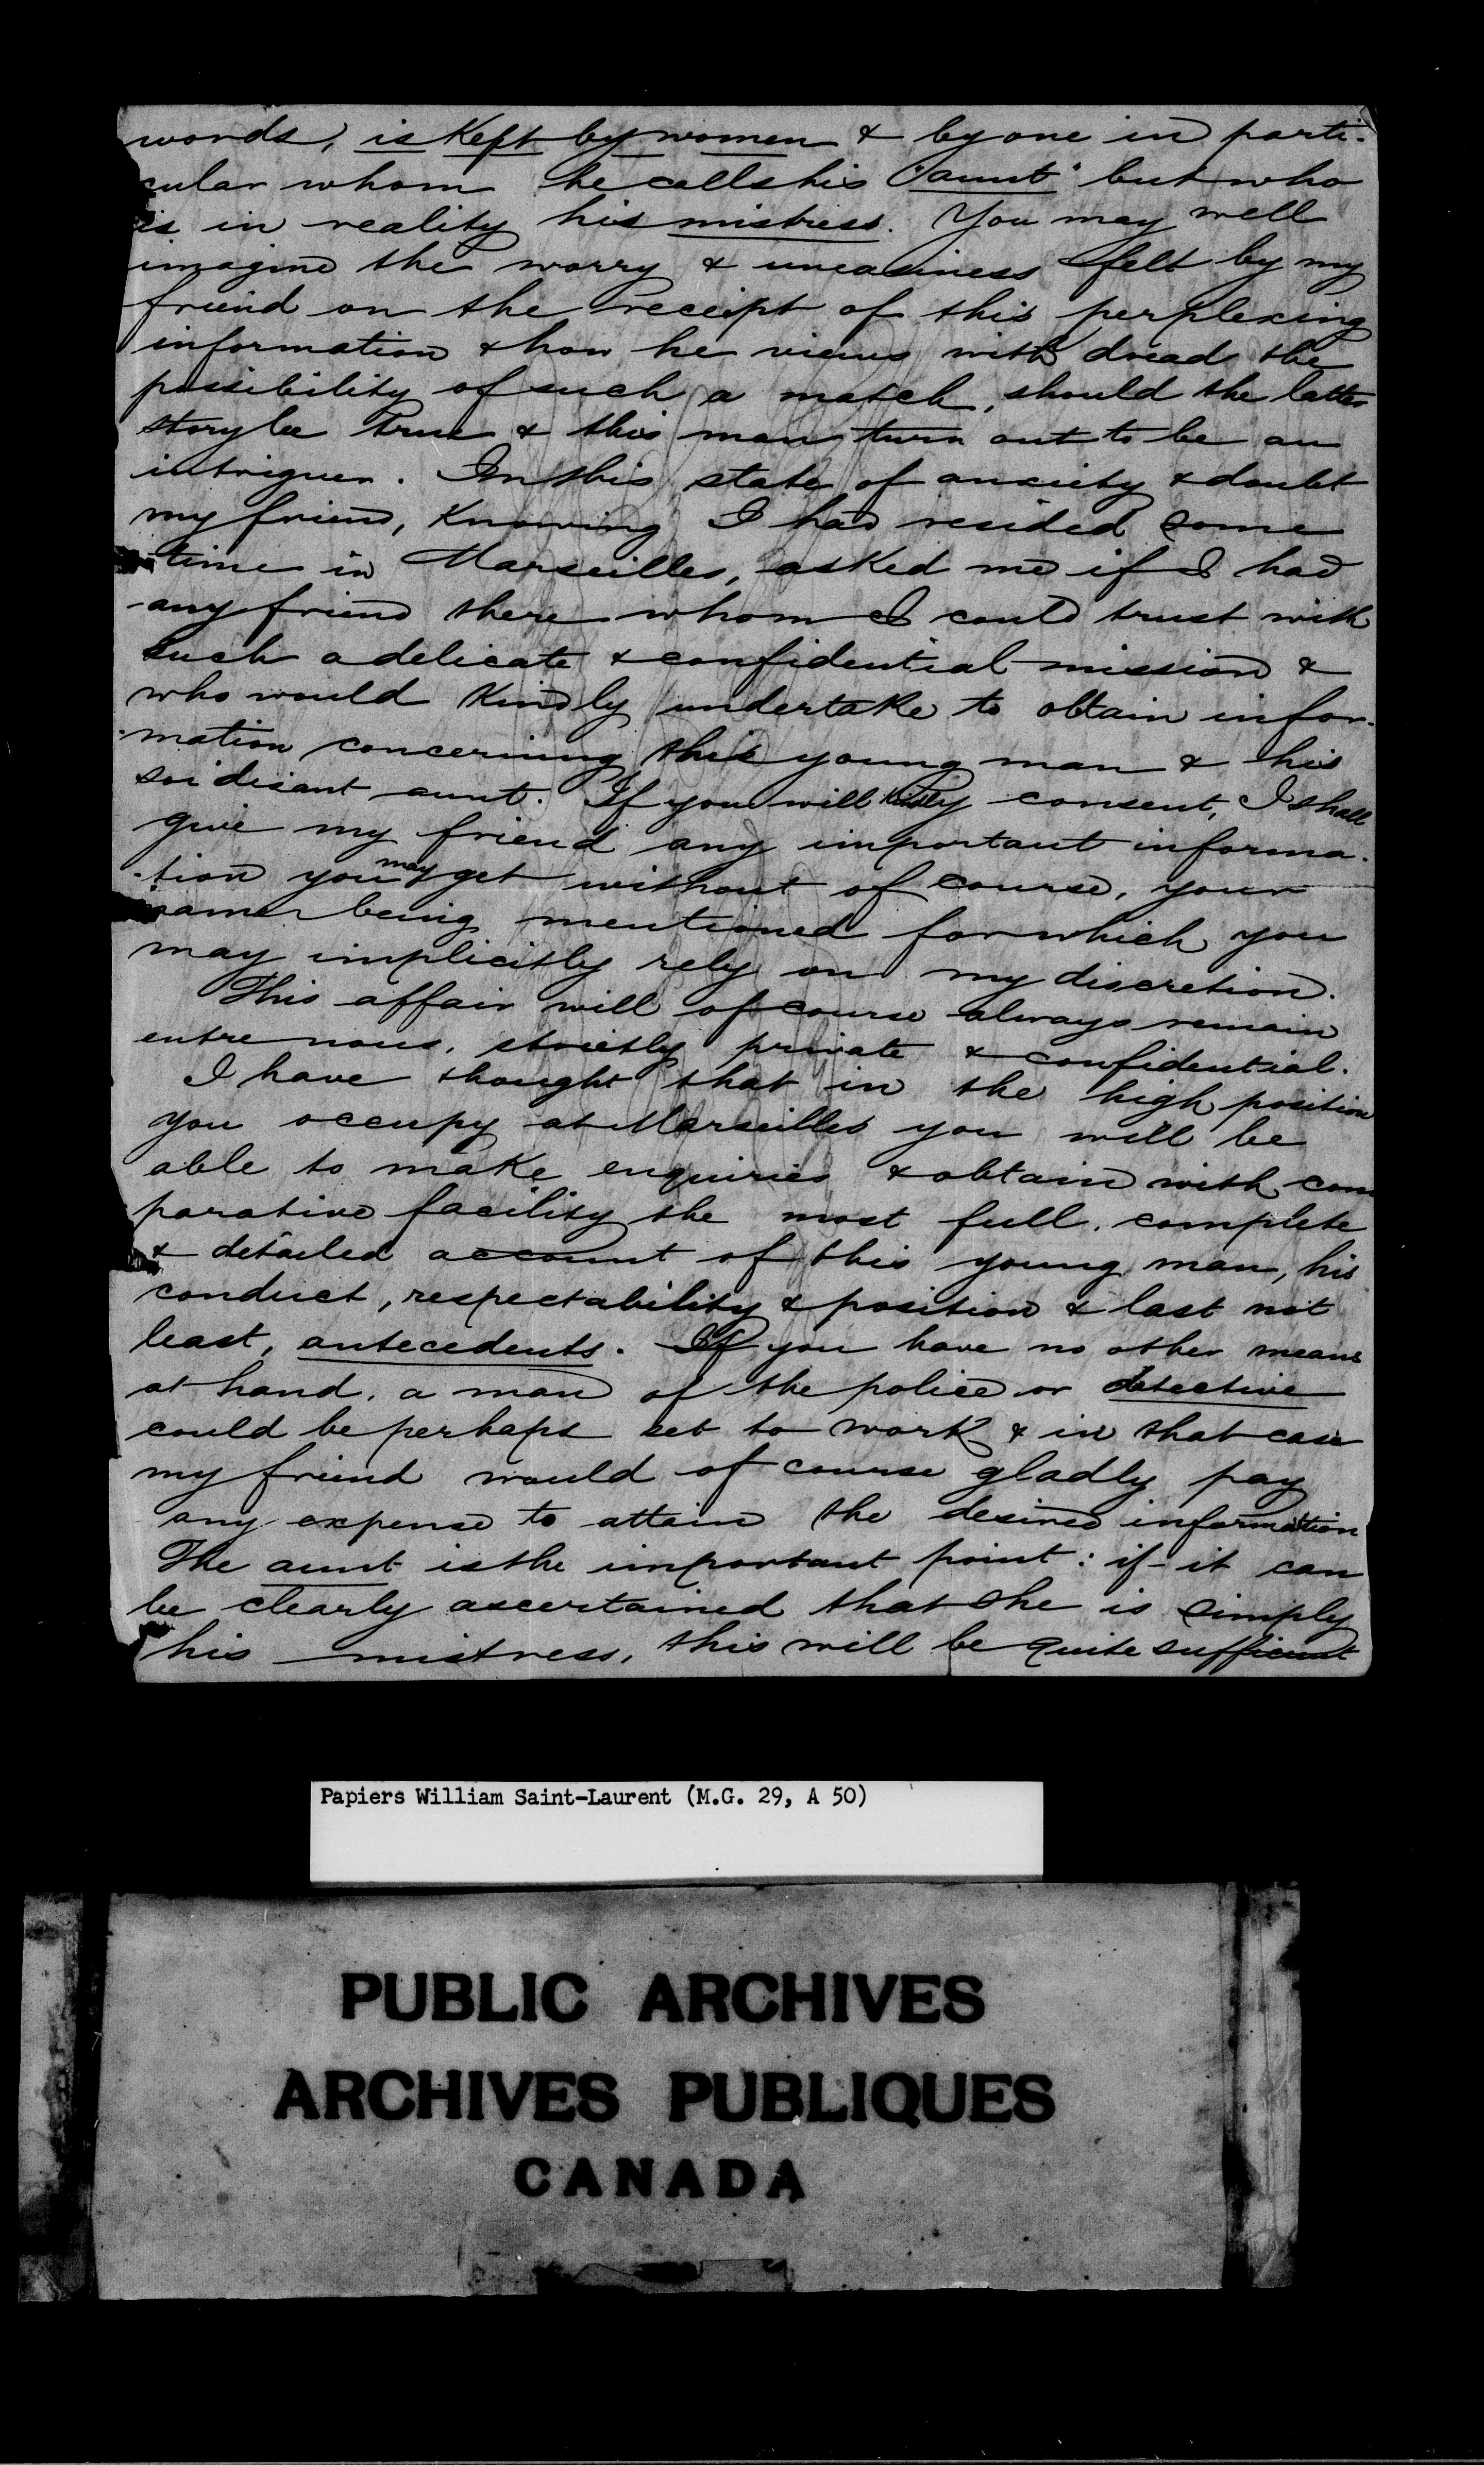 words, is kept by women & by one in parti-
cular whom he calls his "aunt" but who
is in reality his mistress. You may well
imagine the worry & uneasiness felt by my
friend on the receipt of this perplexing
information & how he views with dread the
possibility of such a match, should the latter
story be true & this man turn out to be an
intriguer. In this state of anxiety & doubt
my friend, knowing I had resided some
time in Marseilles, asked me if I had
any friend there whom I could trust with
such a delicate & confidential mission &
who would kindly undertake to obtain infor-
mation concerning this young man & his
soi disant aunt. If you will kindly consent, I shall
give my friend any important informa-
-tion you may get without of course, your
name being mentioned for which you
may implicitly rely on my discretion.
This affair will of course always remain
entre nous, strictly private & confidential.
I have thought that in the high position
you occupy at Marseilles you will be
able to make enquiries & obtain with com
parative facility the most full, complete
& detailed account of this young man, his
conduct, respectability & position & last not
least, antecedents. If you have no other means
at hand, a man of the police or detective
could be perhaps set to work & in that case
my friend would of course gladly pay
any expense to attain the desired information
The aunt is the important point: if it can
be clearly ascertained that she is simply
his mistress, this will be quite sufficient
Papiers William Saint-Laurent (M.G. 29, A 50)
PUBLIC ARCHIVES
ARCHIVES PUBLIQUES
CANADA